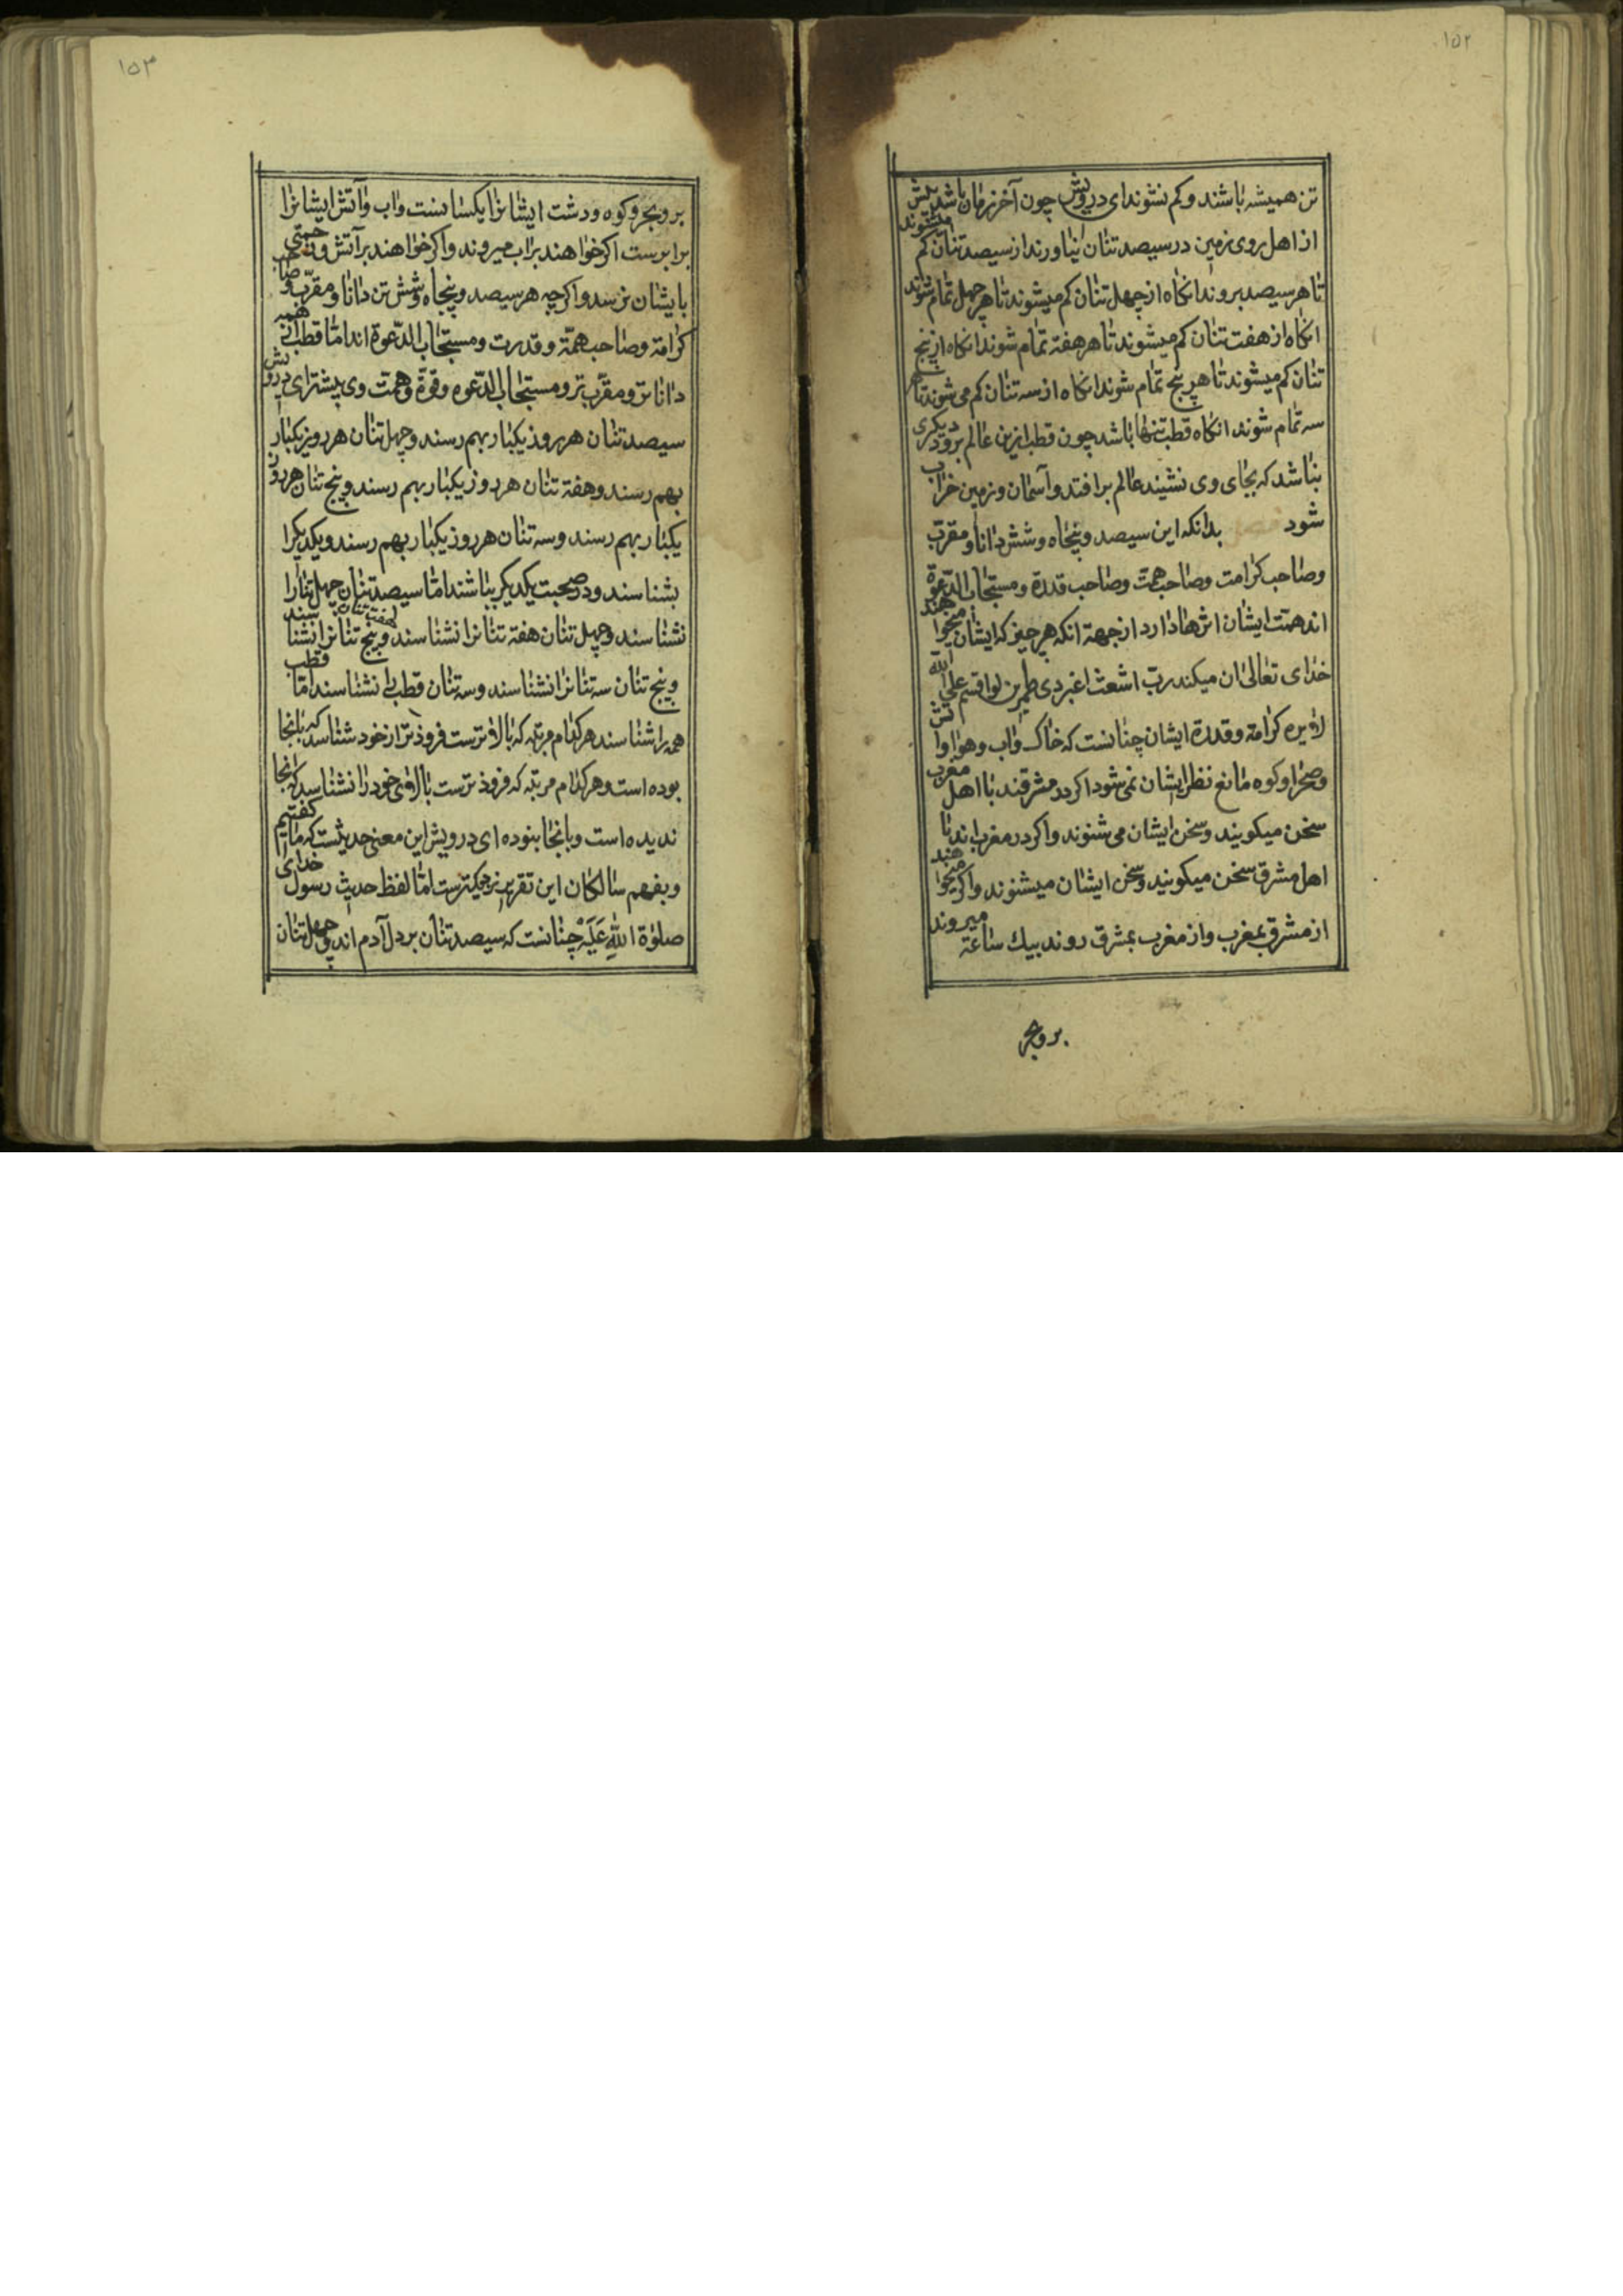 ۱۵۲
تن همیشه باشند و کم نشوند ای درویش چون آخر زمان باشد بیش
از اهل روی زمین در سیصد تنان نیاورند از سیصد تنان کم میشوند
تا هر سیصد بروند انکاه از چهل تنان کم میشوند تا هر چهل تمام شوند
انکاه از هفت تنان کم میشوند تا هر هفته تمام شوند انکاه از پنج
تنان کم میشوند تا هر پنج تمام شوند انکاه از سه تنان کم می شوند تا هر
سه تمام شوند انکاه قطب تنها باشد چون قطب ازین عالم برود دیکری
نباشد که بجای وی نشیند عالم برافتد و آسمان و زمین خراب
شود فصل بدانکه این سیصد و پنجاه و شش دانا و مقرب
و صاحب کرامت و صاحب همت و صاحب قدرة و مستجاب الدعوة
اند همت ایشان اثرها دارد از جهة انکه هر چیز که ایشان میخواهند
خدای تعالی ان میکند رب اشعث اغبر ذی طمرین لو اقسم علی الله
لابره کرامة و قدرة ایشان چنانست که خاک و اب و هوا و اتش
و صحرا و کوه مانع نظر ایشان نمی شود اکر در مشرقند با اهل مغرب
سخن میکویند و سخن ایشان می شنوند و اکر در مغرب اند با
اهل مشرق سخن میکویند و سخن ایشان میشنوند و اکر میخواهند
از مشرق بمغرب و از مغرب بمشرق روند بیک ساعة میروند
بر و بحر
۱۵۳
بر و بحر و کوه و دشت ایشانرا یکسانست و اب و آتش ایشانرا
برابرست اکر خواهند بر اب میروند و اکر خواهند بر آتش و زحمتی
بایشان نرسد و اکرچه هر سیصد و پنجاه و شش تن دانا و مقرب و صاحب
کرامة و صاحب همة و قدرت و مستجاب الدعوة اند اما قطب از همه
داناتر و مقرب تر و مستجاب الدعوه و قوة و همت وی بیشتر ای درویش
سیصد تنان هر روز یکبار بهم رسند و چهل تنان هر روز یکبار
بهم رسند و هفة تنان هر روز یکبار بهم رسند و پنج تنان هر روز
یکبار بهم رسند و سه تنان هر روز یکبار بهم رسند و یکدیکرا
بشناسند و در صحبت یکدیکر باشند اما سیصد تنان چهل تنانرا
نشناسند و چهل تنان هفة تنانرا نشناسند هفت تنان و پنج تنانرا نشناسند
و پنج تنان سه تنانرا نشناسند و سه تنان قطب را نشناسند اما قطب
همه را شناسند هر کدام مرتبه که بالاترست فروذتر از خود شناسد که بانجا
بوده است و هر کدام مرتبه که فروذترست بالای خود را نشناسد که انجا
ندیده است و بانجا بنوده ای درویش این معنی حدیثست که ما کفتیم
و بفهم سالکان این تقریر نزدیکترست اما لفظ حدیث رسول خدای
صلوة الله علیه چنانست که سیصد تنان بر دل آدم اند و چهل تنان